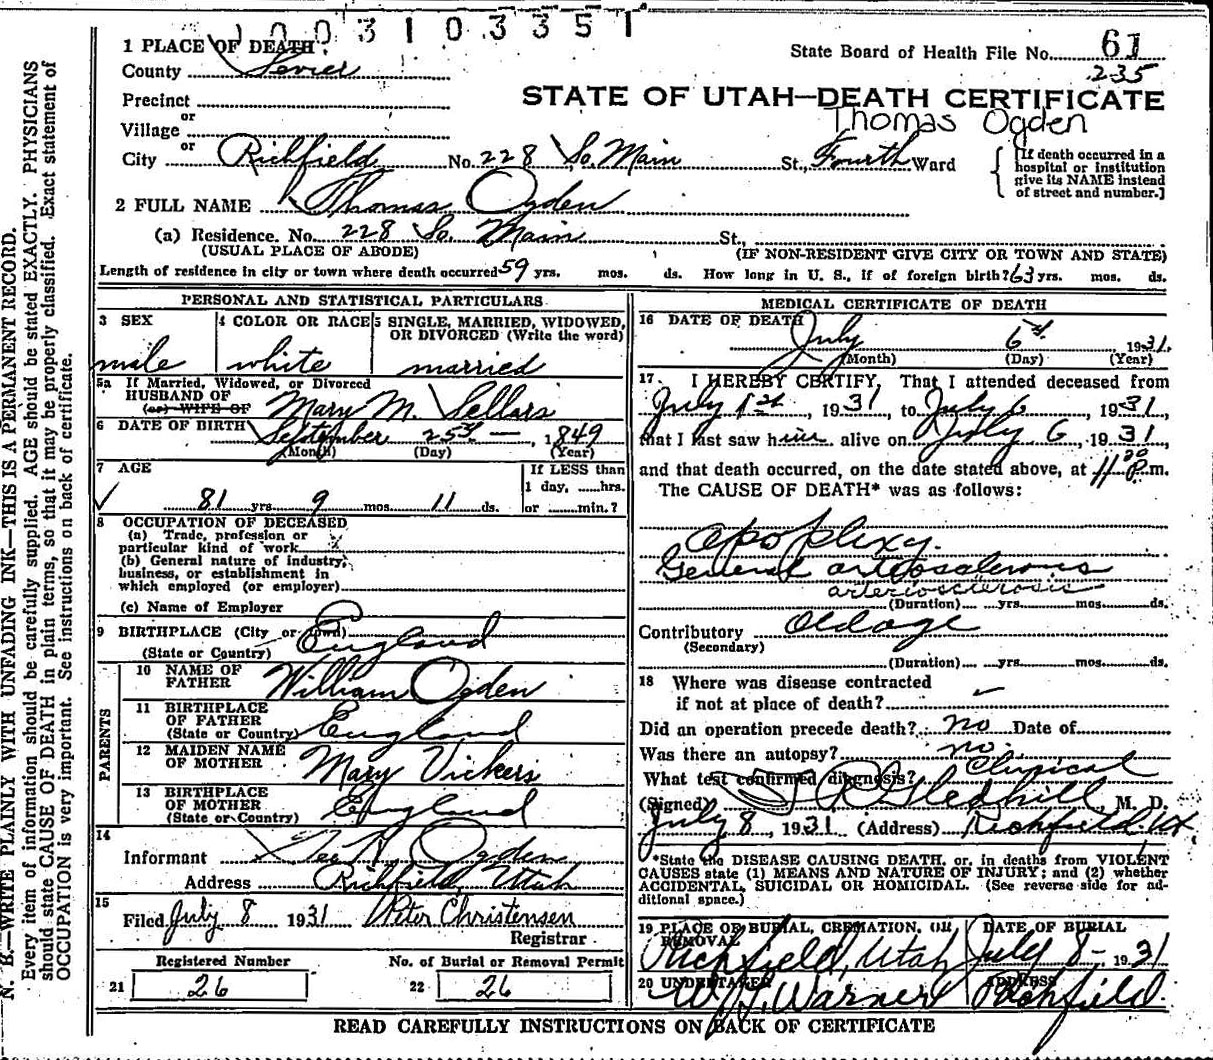 0 0 3 1 0 3 3 5 1
1 PLACE OF DEATH:
State Board of Health File No. 61
County Sevier
235
Precinct
or
STATE OF UTAH—DEATH CERTIFICATE
Thomas Ogden
Village
or
City Richfield No. 228 So. Main St., Fourth Ward
[If death occurred in a
hospital or institution
give its NAME instead
of street and number.]
2 FULL NAME Thomas Ogden
(a) Residence. No. 228 So. Main St.,
(USUAL PLACE OF ABODE) (IF NON-RESIDENT GIVE CITY OR TOWN AND STATE)
Length of residence in city or town where death occurred 59 yrs. mos. ds. How long in U. S., if of foreign birth? 63 yrs. mos. ds.
PERSONAL AND STATISTICAL PARTICULARS
3 SEX 4 COLOR OR RACE 5 SINGLE, MARRIED, WIDOWED,
OR DIVORCED (Write the word)
male white married
5a If Married, Widowed, or Divorced
HUSBAND OF
(or) WIFE OF Mary M. Sellars
6 DATE OF BIRTH September 25th — 1849
(Month) (Day) (Year)
7 AGE If LESS than
1 day, ......hrs.
81 yrs. 9 mos. 11 ds. or ........min.?
8 OCCUPATION OF DECEASED
(a) Trade, profession or
particular kind of work x
(b) General nature of industry,
business, or establishment in
which employed (or employer)
(c) Name of Employer
9 BIRTHPLACE (City or town)
(State or Country) England
PARENTS
10 NAME OF
FATHER William Ogden
11 BIRTHPLACE
OF FATHER
(State or Country) England
12 MAIDEN NAME
OF MOTHER Mary Vickers
13 BIRTHPLACE
OF MOTHER
(State or Country) England
14
Informant Ogden
Address Richfield, Utah
15
Filed July 8 1931 Peter Christensen
Registrar
Registered Number No. of Burial or Removal Permit
21 26 22 26
MEDICAL CERTIFICATE OF DEATH
16 DATE OF DEATH
July 6th, 1931.
(Month) (Day) (Year)
17. I HEREBY CERTIFY, That I attended deceased from
July 1st, 1931, to July 6, 1931,
that I last saw him alive on July 6, 1931,
and that death occurred, on the date stated above, at 11 P.m.
The CAUSE OF DEATH* was as follows:
apoplexy.
General arteriosclerosis
arteriosclerosis
(Duration) yrs. mos. ds.
Contributory Old age
(Secondary)
(Duration) yrs. mos. ds.
18 Where was disease contracted
if not at place of death?
Did an operation precede death? no Date of
Was there an autopsy? no.
What test confirmed diagnosis? Clinical
(Signed) Gledhill, M. D.
July 8, 1931 (Address) Richfield. Ut.
*State the DISEASE CAUSING DEATH, or, in deaths from VIOLENT
CAUSES state (1) MEANS AND NATURE OF INJURY; and (2) whether
ACCIDENTAL, SUICIDAL OR HOMICIDAL. (See reverse side for ad-
ditional space.)
19 PLACE OF BURIAL, CREMATION, OR
REMOVAL DATE OF BURIAL
Richfield, Utah July 8- 1931
20 UNDERTAKER ADDRESS
Warner Richfield.
READ CAREFULLY INSTRUCTIONS ON BACK OF CERTIFICATE
N. B.—WRITE PLAINLY WITH UNFADING INK—THIS IS A PERMANENT RECORD.
Every item of information should be carefully supplied. AGE should be stated EXACTLY. PHYSICIANS
should state CAUSE OF DEATH in plain terms, so that it may be properly classified. Exact statement of
OCCUPATION is very important. See instructions on back of certificate.